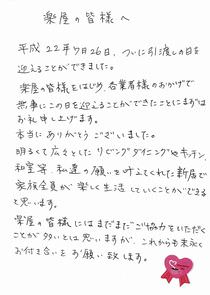 楽屋の皆様へ
平成22年7月26日、ついに引渡しの日を
迎えることができました。
楽屋の皆様をはじめ、各業者様のおかげで
無事にこの日を迎えることができたことにまずは
お礼申し上げます。
本当にありがとうございました。
明るくて広々としたリビングダイニングやキッチン、
和室等、私達の願いを叶えてくれた新居で
家族全員が楽しく生活していくことができると
と思います。
楽屋の皆様にはまだまだご協力をいただく
ことが多いとは思いますが、これからも末永く
お付き合いをお願い致します。